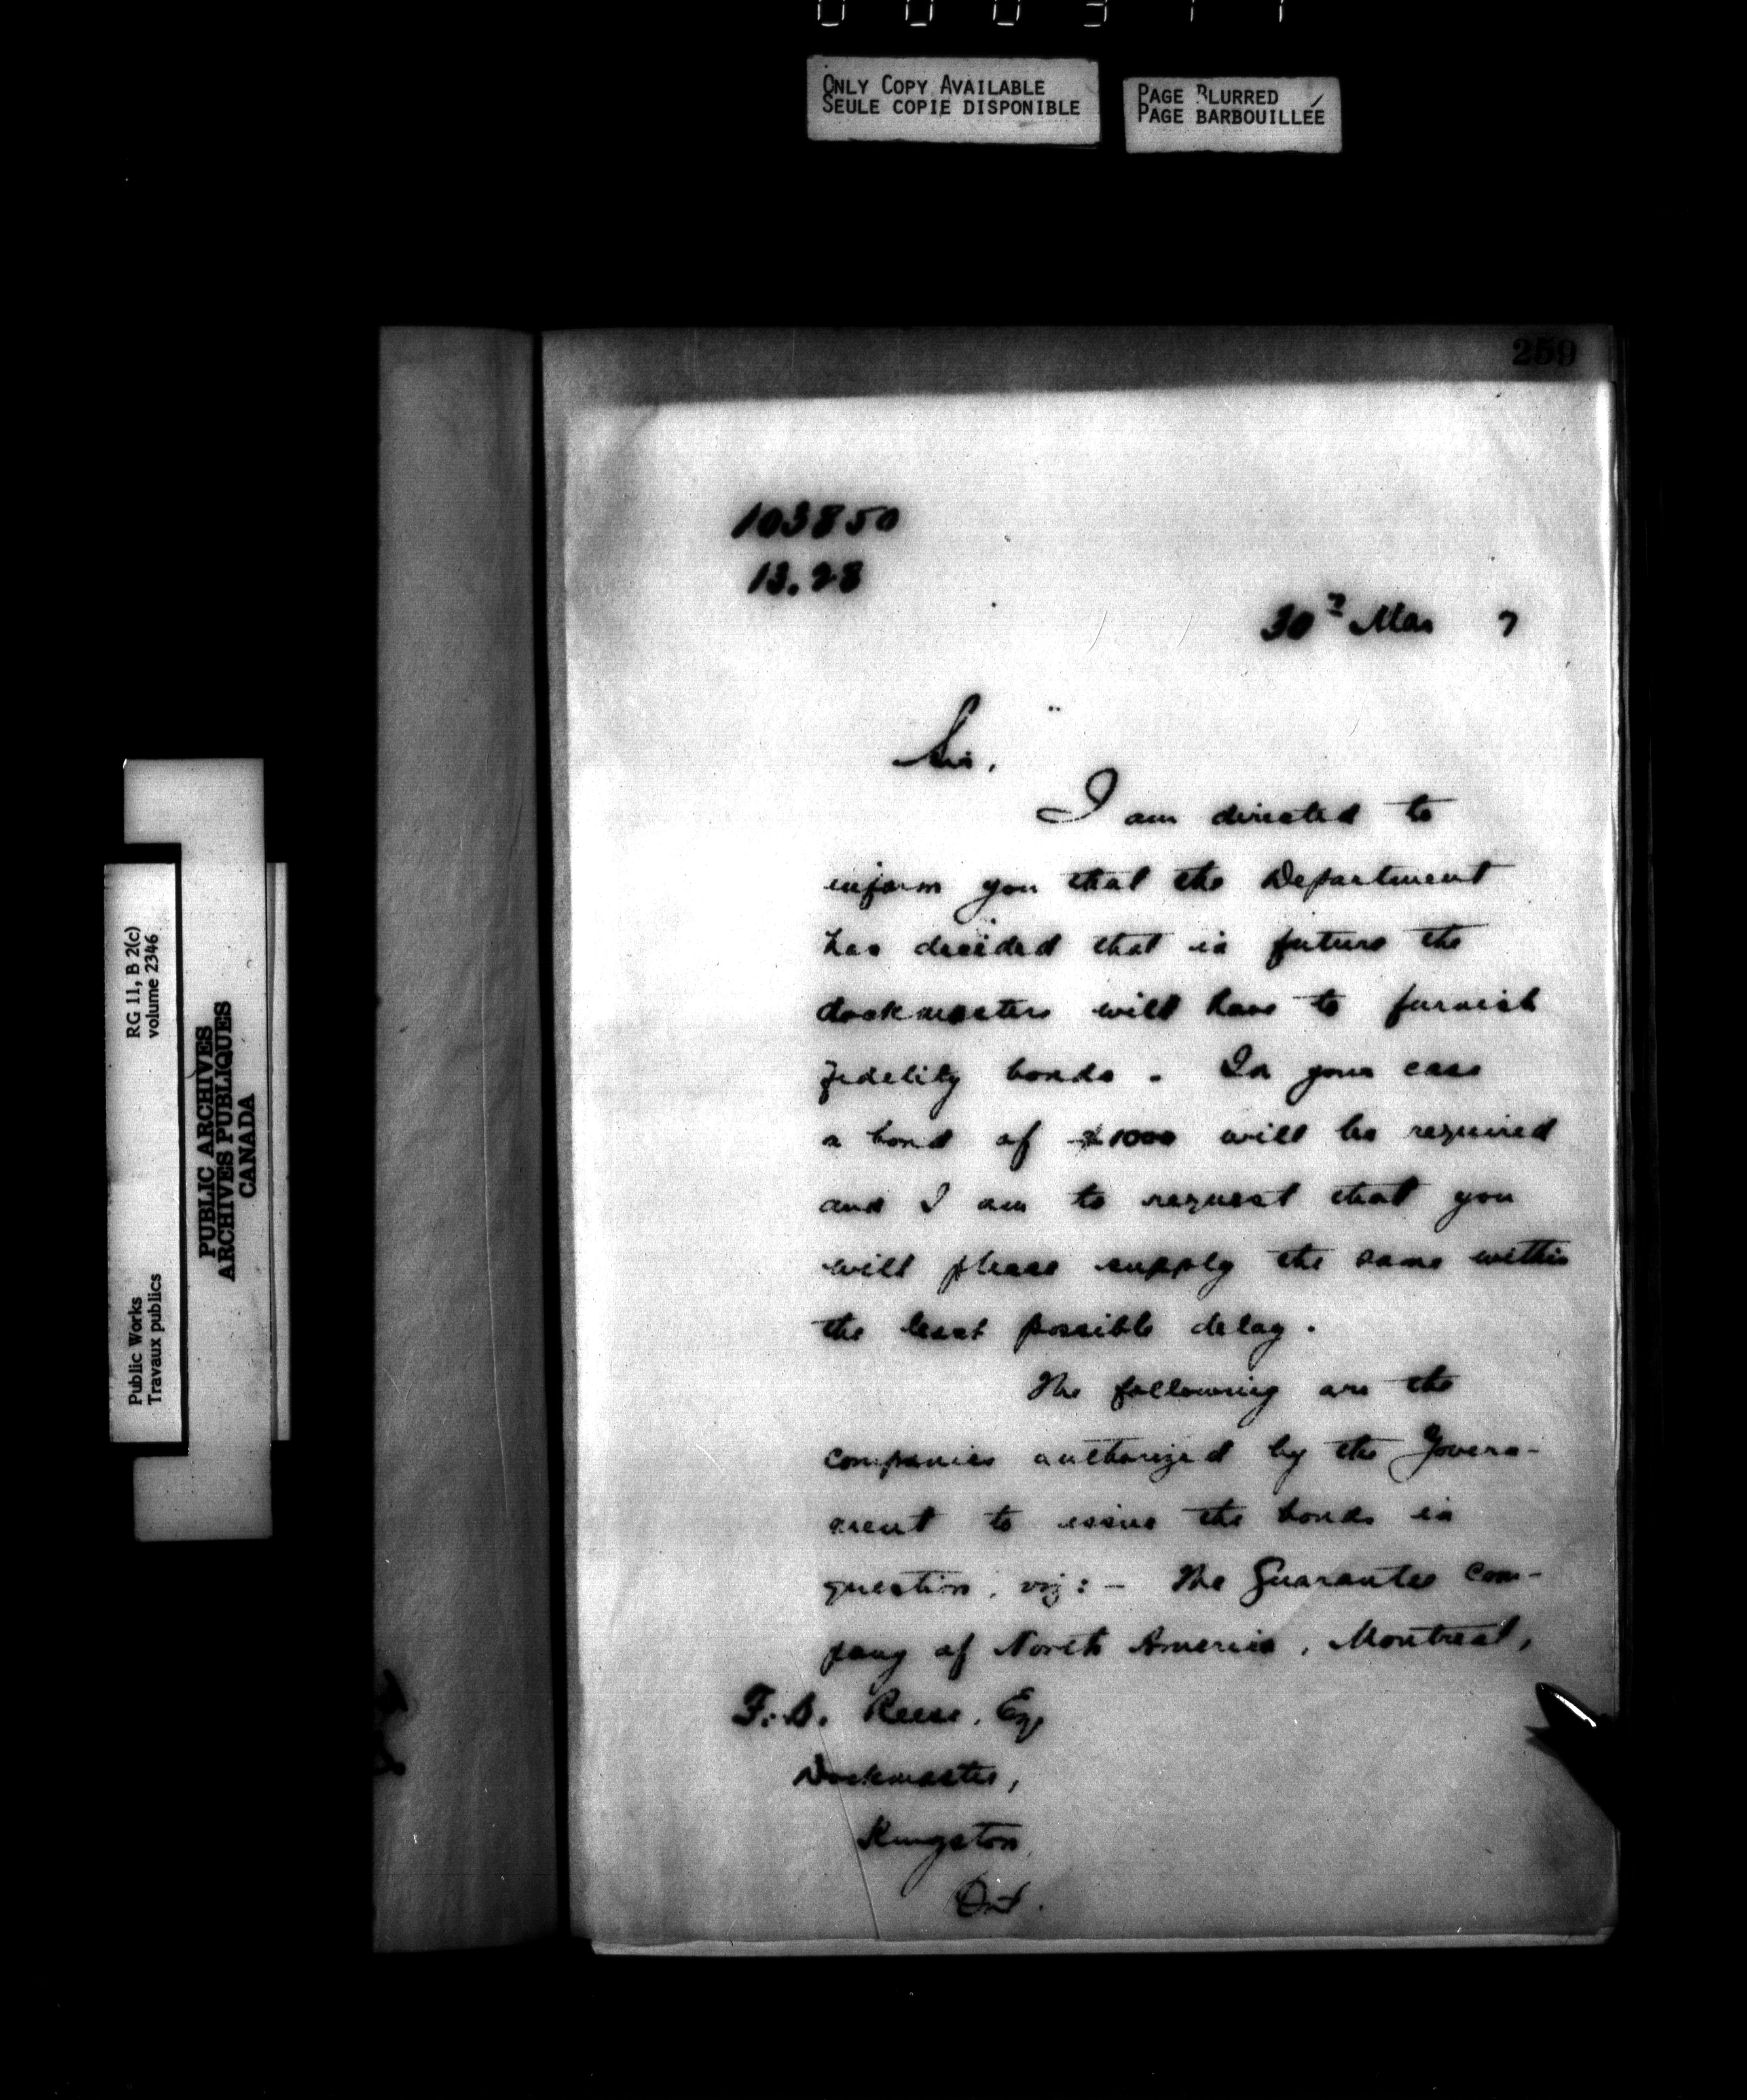 ONLY COPY AVAILABLE
SEULE COPIE DISPONIBLE
PAGE BLURRED
PAGE BARBOUILLÉE
259
103850
13.28
30 Mar 7
Sir,
I am directed to
inform you that the Department
has decided that in future the
dockmasters will have to furnish
fidelity bonds. In your case
a bond of $1000 will be required
and I am to request that you
will please supply the same within
the least possible delay.
The following are the
companies authorized by the Govern-
ment to issue the bonds in
question, viz:- The Guarantee Com-
pany of North America, Montreal,
Reese, Esq
Dockmaster,
Kingston
Ont.
RG 11, B 2(c)
volume 2346
Public Works
Travaux publics
PUBLIC ARCHIVES
ARCHIVES PUBLIQUES
CANADA